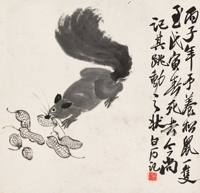 丙子年予养松鼠一隻
至戊寅冬死去今尚
记其跳動之状白石记